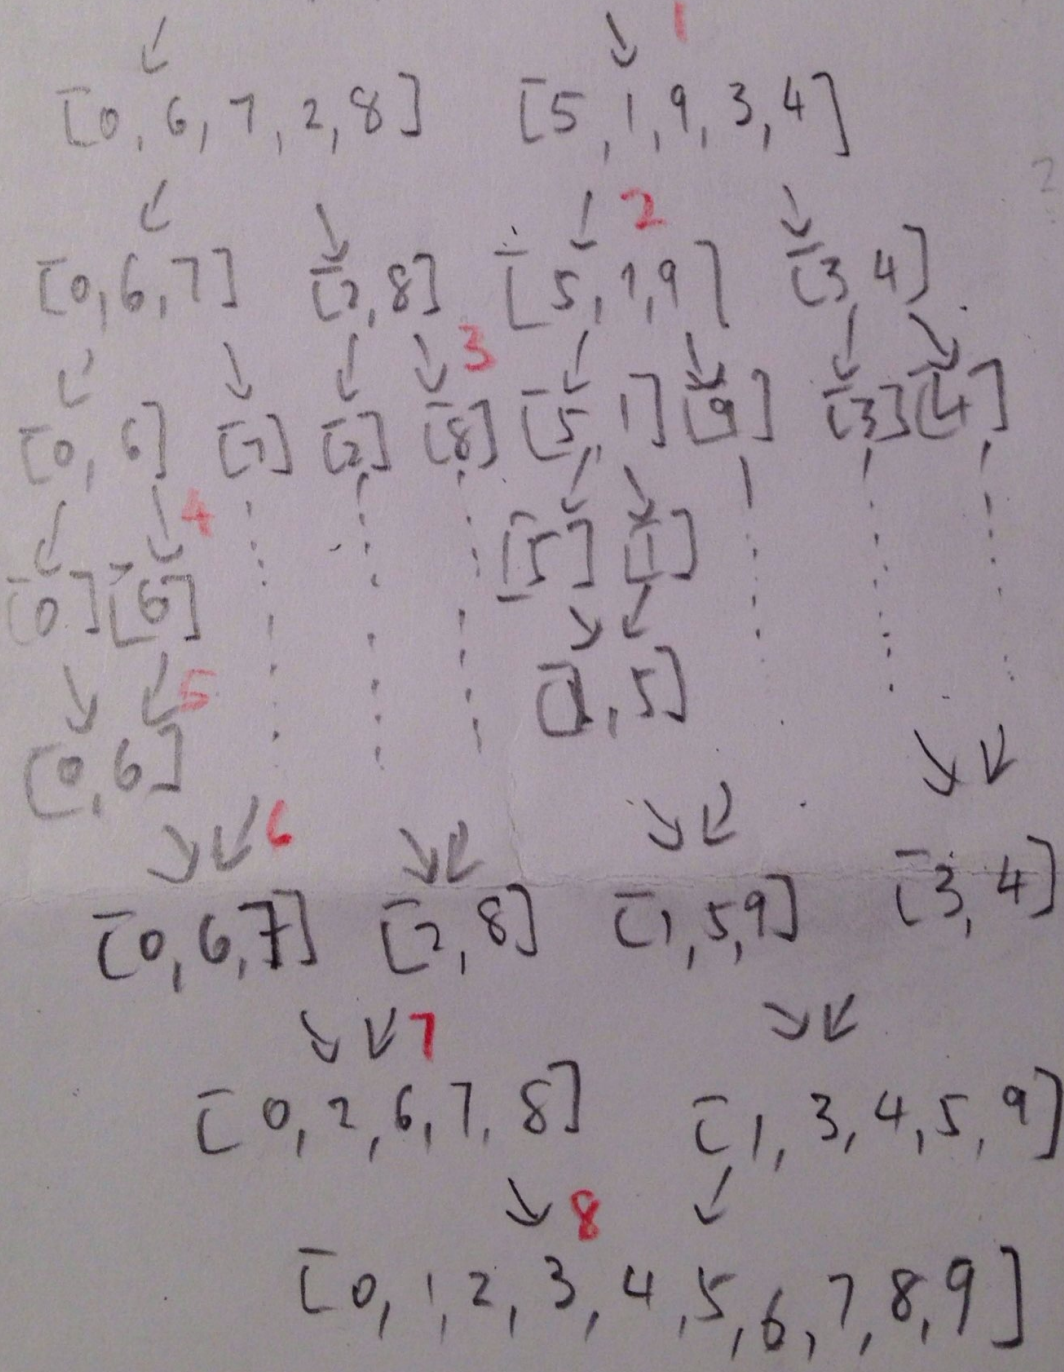 1
[0, 6, 7, 2, 8] [5, 1, 9, 3, 4]
2
2
[0, 6, 7] [2, 8] [5, 1, 9] [3, 4]
3
[0, 6] [7] [2] [8] [5, 1] [9] [3] [4]
4
[5] [1]
[0] [6]
5
[1, 5]
[0, 6]
6
[0, 6, 7] [2, 8] [1, 5, 9] [3, 4]
7
[0, 2, 6, 7, 8] [1, 3, 4, 5, 9]
8
[0, 1, 2, 3, 4, 5, 6, 7, 8, 9]